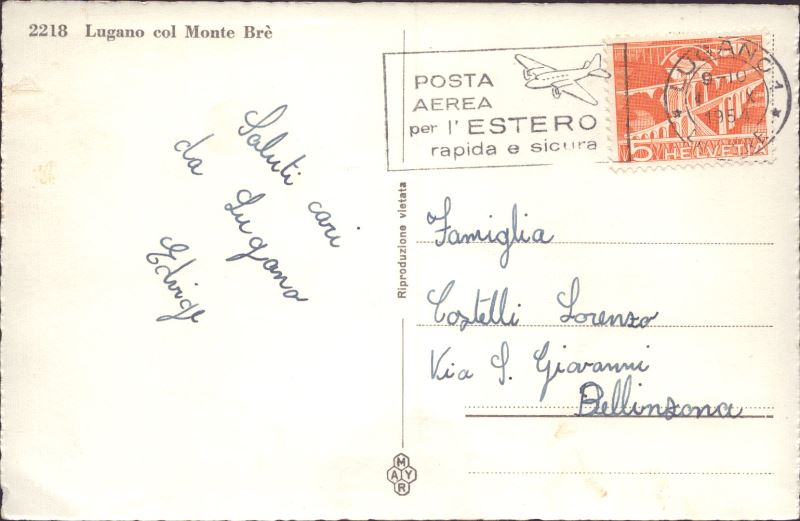 2218 Lugano col Monte Brè
POSTA
AEREA
per l'ESTERO
rapida e sicura
LUGANO 1
9-10
IX
1954
5 HELVETIA
Saluti cari
da Lugano
Edvige
Riproduzione vietata
Famiglia
Costelli Lorenzo
Via S. Giovanni
Bellinzona
MAYR